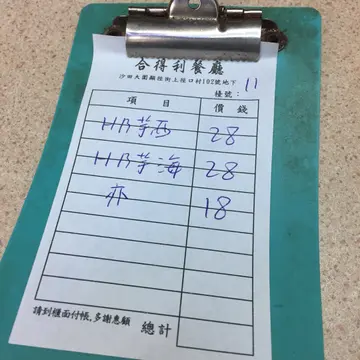 合得利餐廳
沙田大圍顯徑街上徑口村192號地下
號： 11
項 目 價 錢
HB 28
HB 海 28
亦 18
請到櫃面付帳,多謝惠顧 總計